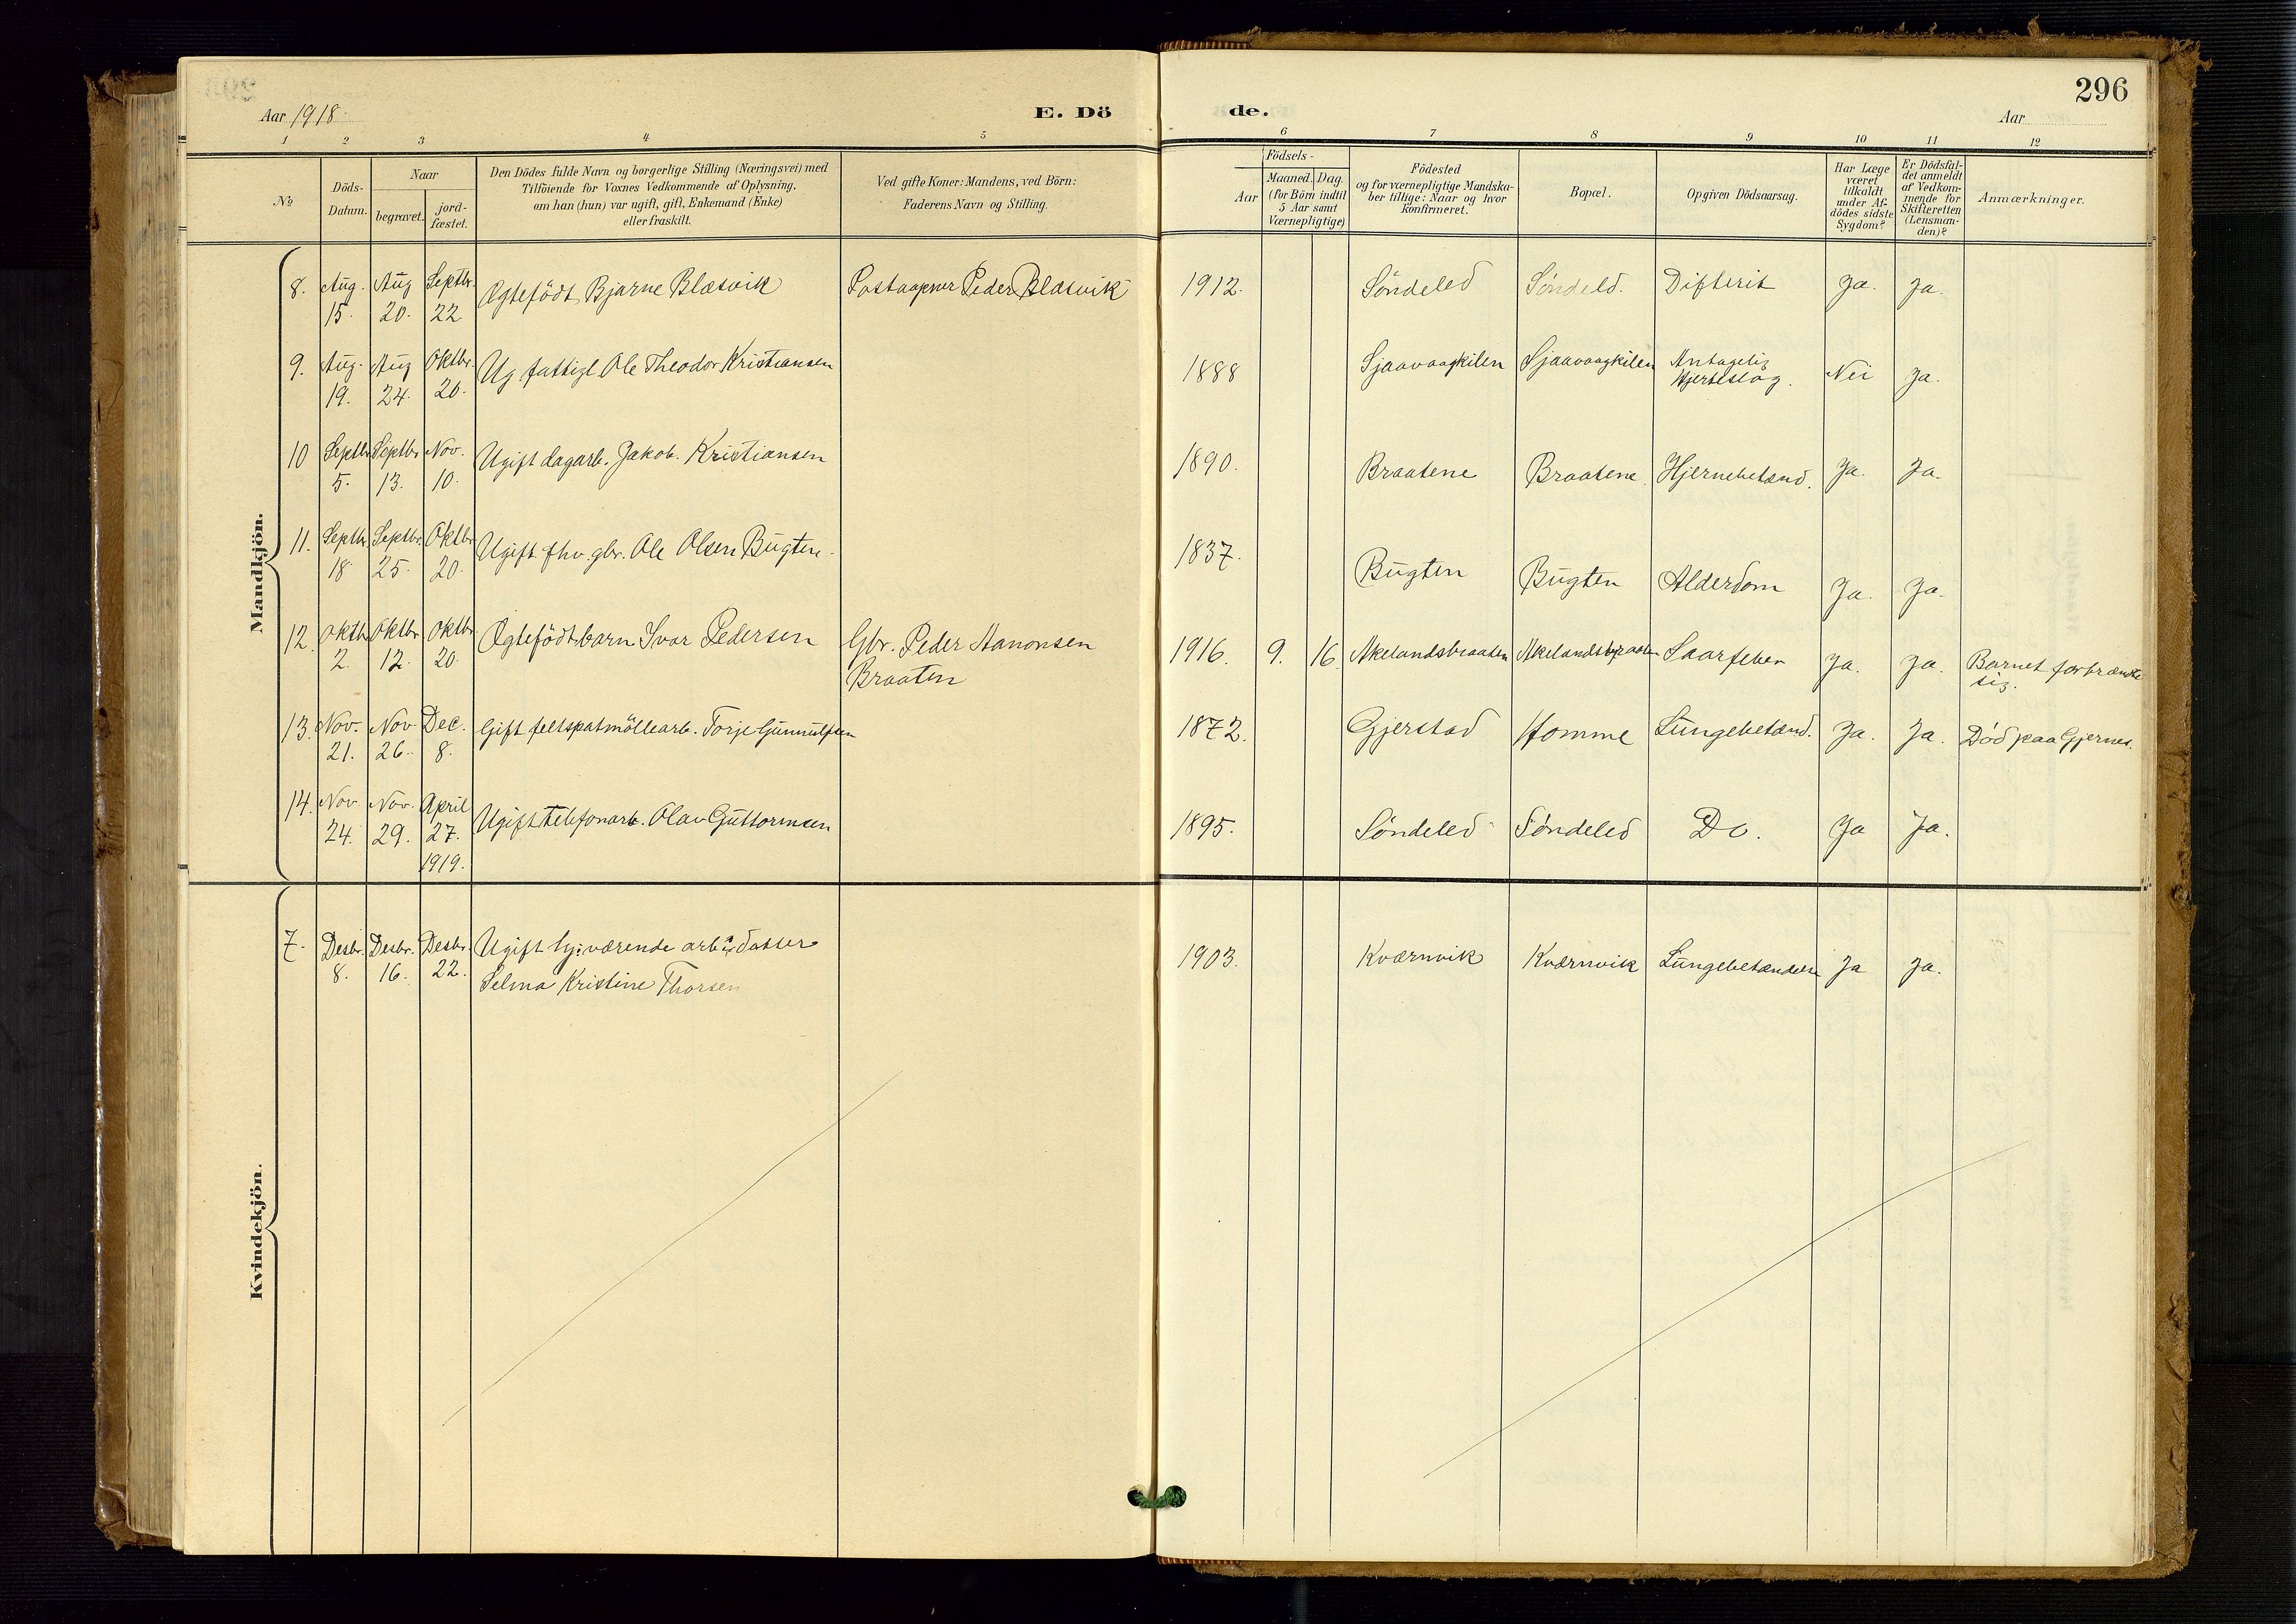 296
Aar 1918
E. Dö
de.
Aar
1 2 3 4 5 6 7 8 9 10 11 12
№
Döds-
Datum.
Naar
begravet.
jord-
fæstet.
Den Dödes fulde Navn og borgerlige Stilling (Næringsvei) med
Tilföiende for Voxnes Vedkommende af Oplysning,
om han (hun) var ugift, gift, Enkemand (Enke)
eller fraskilt.
Ved gifte Koner: Mandens, ved Börn:
Faderens Navn og Stilling.
Födsels-
Aar
Maaned. Dag.
(for Börn indtil
5 Aar samt
Værnepligtige)
Födested
og for værnepligtige Mandska-
ber tillige: Naar og hvor
konfirmeret.
Bopæl.
Opgiven Dödsaarsag.
Har Læge
været
tilkaldt
under Af-
dödes sidste
Sygdom?
Er Dödsfal-
det anmeldt
af Vedkom-
mende for
Skifteretten
(Lensman-
den)?
Anmærkninger.
Mandkjön.
8. Aug. Aug Septbr. Ægtefödt Bjarne Blæsvik Postaapner Peder Blæsvik 1912. Söndeled Söndeld. Difterit Ja. Ja.
15. 20. 22
9. Aug. Aug Oktbr. Ug. fattigl. Ole Theodor Kristiansen 1888 Sjaavaagkilen Sjaavaagkilen Antagelig Nei Ja.
19. 24. 20. Hjerteslag.
10 Septbr. Septbr. Nov. Ugift dagarb. Jakob. Kristiansen 1890. Braatene Braatene Hjernebetænd. Ja. Ja.
5. 13. 10.
11. Septbr. Septbr. Oktbr. Ugift fhv. gbr. Ole Olsen Bugten. 1837. Bugten Bugten Alderdom Ja. Ja.
18. 25. 20.
12. Oktbr. Oktbr. Oktbr. Ægtefödt barn Ivar Pedersen Gbr. Peder Aanonsen 1916. 9. 16. Akelandsbraaten Akelandsbraaten Saarfeber Ja. Ja. Barnet forbrændte
2. 12. 20. Braaten sig.
13. Nov. Nov. Dec. Gift feltspatmöllearb. Torje Gunnulfsen 1872. Gjerstad Homme Lungebetænd. Ja. Ja. Död paa Gjernes.
21. 26. 8.
14. Nov. Nov. April Ugift telefonarb. Olav Guttormsen 1895. Söndeled Söndeled Do. Ja Ja.
24. 29. 27.
1919.
Kvindekjön.
7. Desbr. Desbr. Desbr. Ugift hj: værende arb. datter 1903. Kværnvik Kværnvik Lungebetændelse Ja Ja.
8. 16. 22. Selma Kristine Thorsen